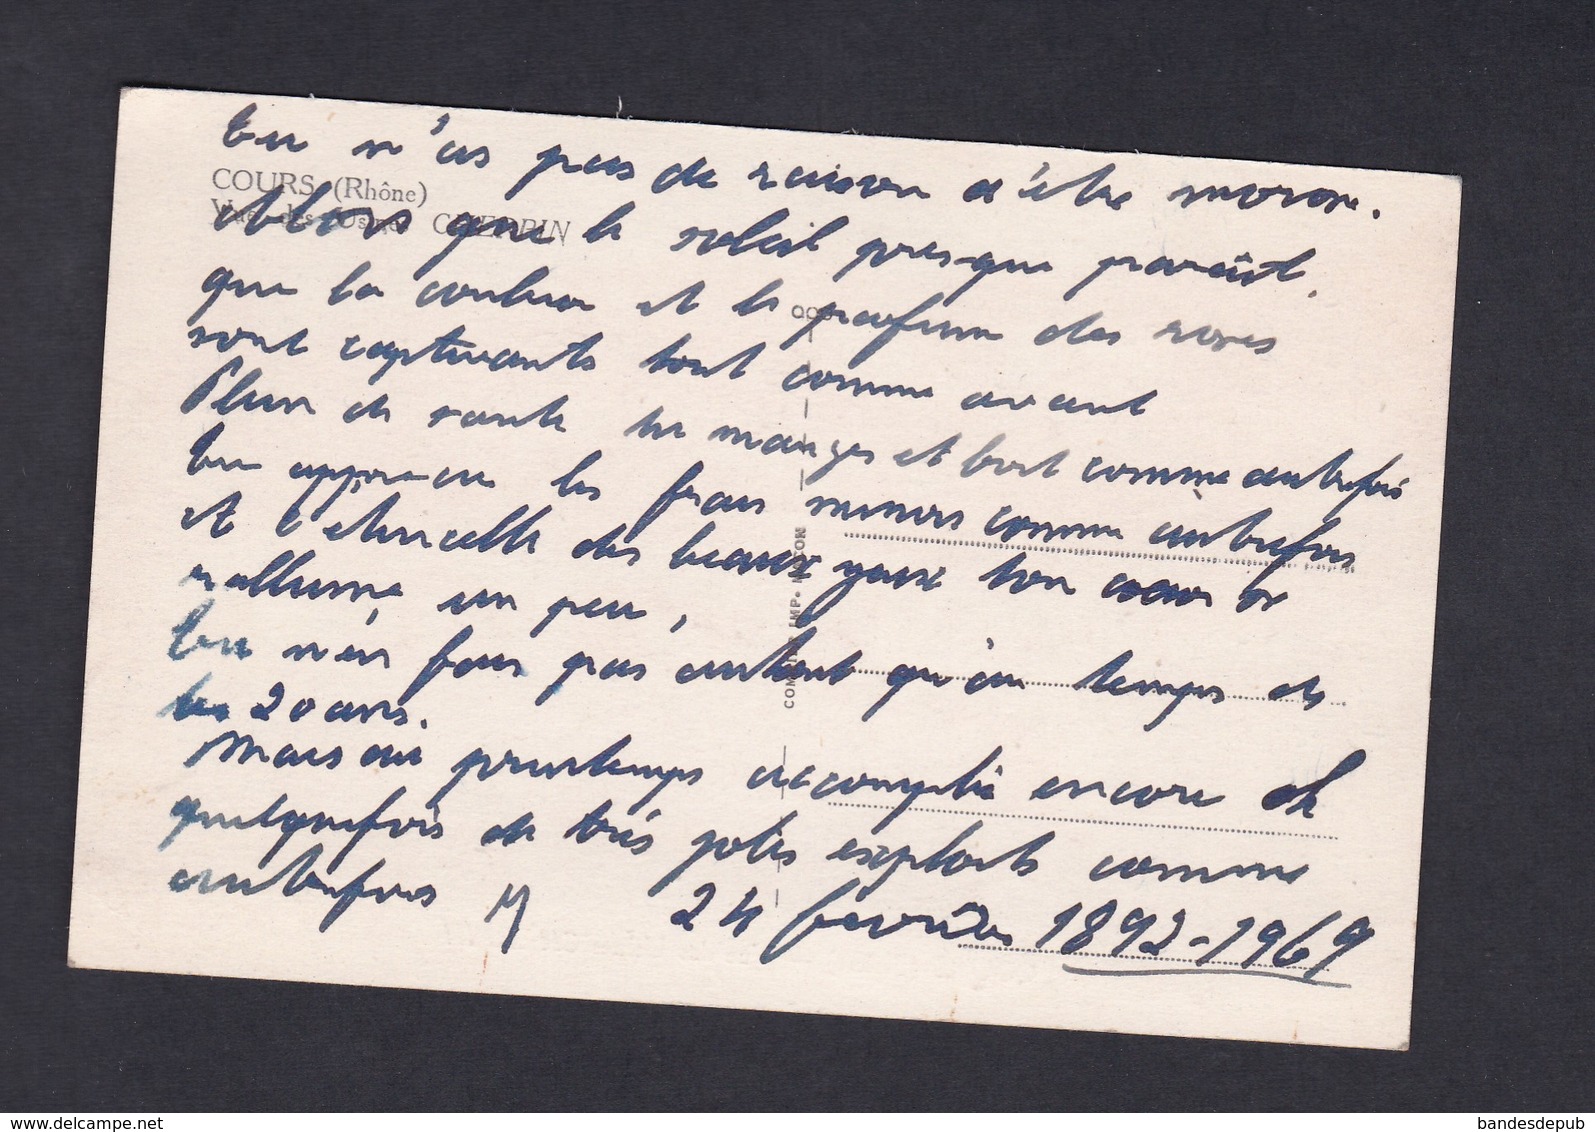 tu n'as pas de raison d'être morose.
COURS (Rhône)
Vue des Usines
Alors que le soleil presque paraît,
que la couleur et le parfum des roses
sont captivants tout comme avant
Plein de santé tu manges et boit comme autrefois
tu apprecie les frais minois comme autrefois
et l'etincelle des beaux yeux ton coeur
rallume un peu,
tu n'en fais pas autant qu'au temps de
tes 20 ans.
Mais au printemps accompli encore
quelquefois de très jolis exploits comme
autrefois M 24 février 1892-1969
COMBIER IMP. MACON
bandesdepub